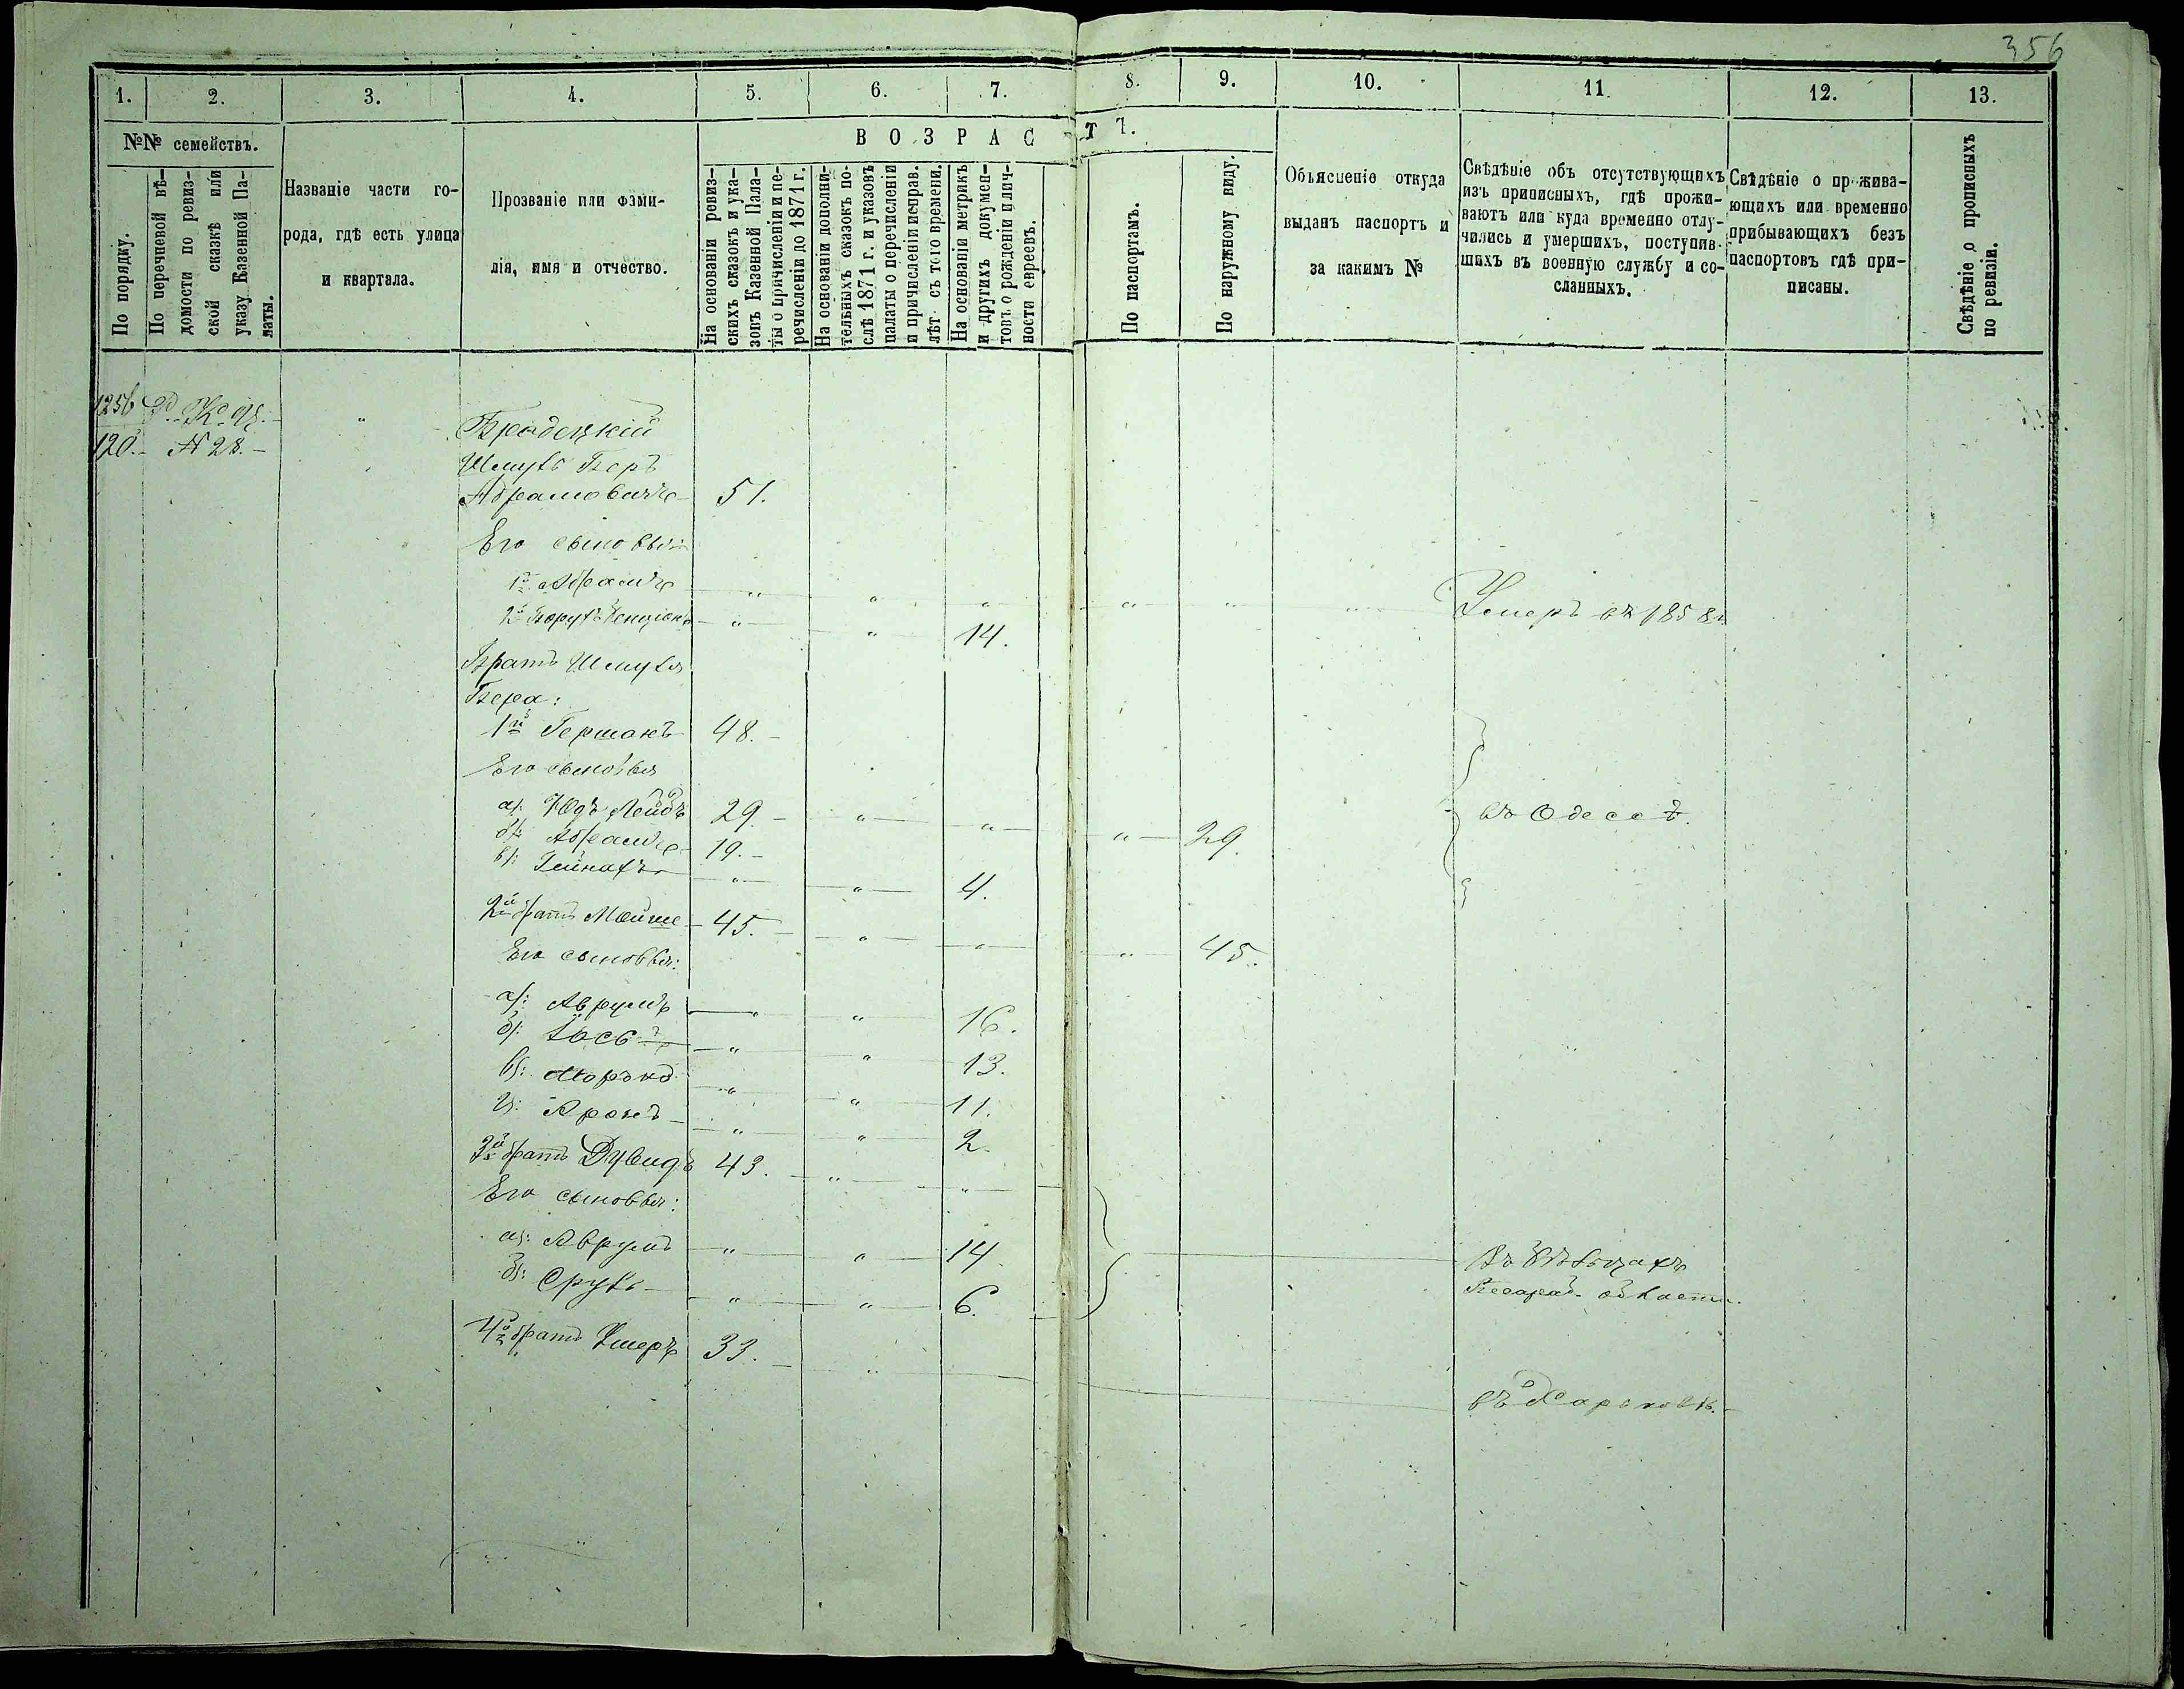 356
1. 2. 3. 4. 5. 6. 7. 8. 9. 10. 11. 12. 13.
№№ семействъ.
По порядку.
По перечневой вѣ-
домости по ревиз-
ской сказкѣ или
указу Казенной Па-
латы.
Названіе части го-
рода, гдѣ есть улица
и квартала.
Прозваніе или фами-
лія, имя и отчество.
ВОЗРАСТЪ.
На основаніи ревиз-
скихъ сказокъ и ука-
зовъ Казенной Пала-
ты о причисленіи и пе-
речисленіи до 1871 г.
На основаніи дополни-
тельныхъ сказокъ по-
слѣ 1871 г. и указовъ
палаты о перечисленіи
и причисленіи исправ.
лѣт. съ того времени.
На основаніи метрикъ
и другихъ докумен-
товъ о рожденіи и лич-
ности евреевъ.
По паспортамъ.
По наружному виду.
Объясненіе откуда
выданъ паспортъ и
за какимъ №
Свѣдѣніе объ отсутствующихъ
изъ приписныхъ, гдѣ прожи-
ваютъ или куда временно отлу-
чились и умершихъ, поступив-
шихъ въ военную службу и со-
сланныхъ.
Свѣдѣніе о прожива-
ющихъ или временно
прибывающихъ безъ
паспортовъ гдѣ при-
писаны.
Свѣдѣніе о прописныхъ
по ревизіи.
1256
120. № 28.
Бродецкій
Шмуль Беръ
Абрамовичъ 51.
Его сыновья
1й Абрамъ " " " " " Умеръ въ 1858 г.
2й Борухъ Бенціонъ " " 14.
Братъ Шмуля
Бера:
1й Гершонъ 48.
Его сыновья
а): Юдъ Лейбъ 29. " " " 29. въ Одессѣ.
б): Абрамъ 19.
в): " " 4.
2й братъ Мойше 45. " " " 45.
Его сыновья:
а): Аврумъ " " 16.
б): Іось " " 13.
в): Моръко " " 11.
г): Аронъ " " 2.
3й братъ Дувидъ 43. " "
Его сыновья:
а): Аврумъ " " 14. Въ Бѣльцахъ
б): Сруль " " 6. Бесараб. области.
4й братъ Ушеръ 33. " въ Харьковѣ.